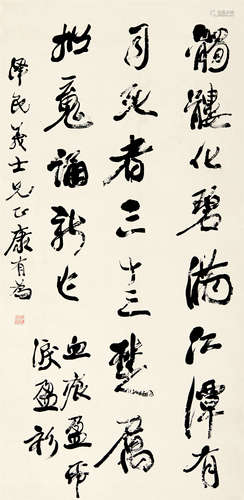 髑髏化碧滿江潭有
同死者三十三楚厲
招魂誦新作 血痕盈帋
淚盈衫
澤民義士兄正 康有為